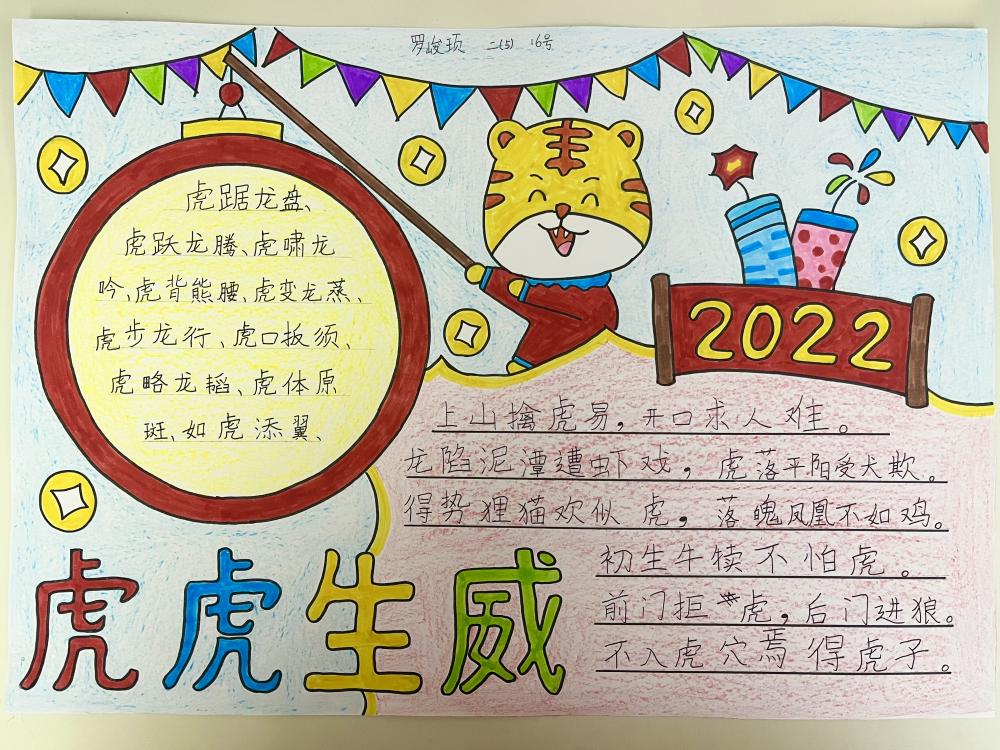 罗峻顼 二(5) 16号
虎踞龙盘、
虎跃龙腾、虎啸龙
吟、虎背熊腰、虎变龙蒸、
虎步龙行、虎口扳须、
虎略龙韬、虎体原
斑、如虎添翼、
2022
上山擒虎易，开口求人难。
龙陷泥潭遭虾戏，虎落平阳受犬欺。
得势狸猫欢似虎，落魄凤凰不如鸡。
初生牛犊不怕虎。
前门拒虎，后门进狼。
不入虎穴焉得虎子。
虎虎生威